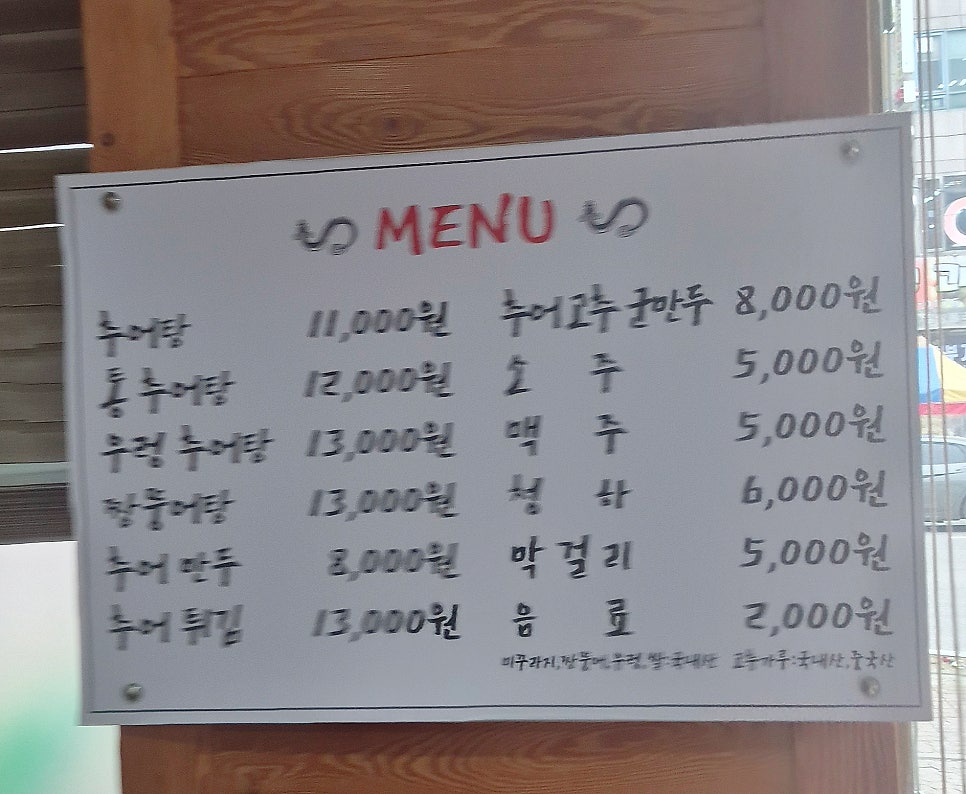 MENU
추어탕 11,000원
통추어탕 12,000원
우렁 추어탕 13,000원
짱뚱어탕 13,000원
추어만두 8,000원
추어튀김 13,000원
추어고추군만두 8,000원
소주 5,000원
맥주 5,000원
청하 6,000원
막걸리 5,000원
음료 2,000원
미꾸라지,짱뚱어,우렁,쌀:국내산 고춧가루:국내산,중국산